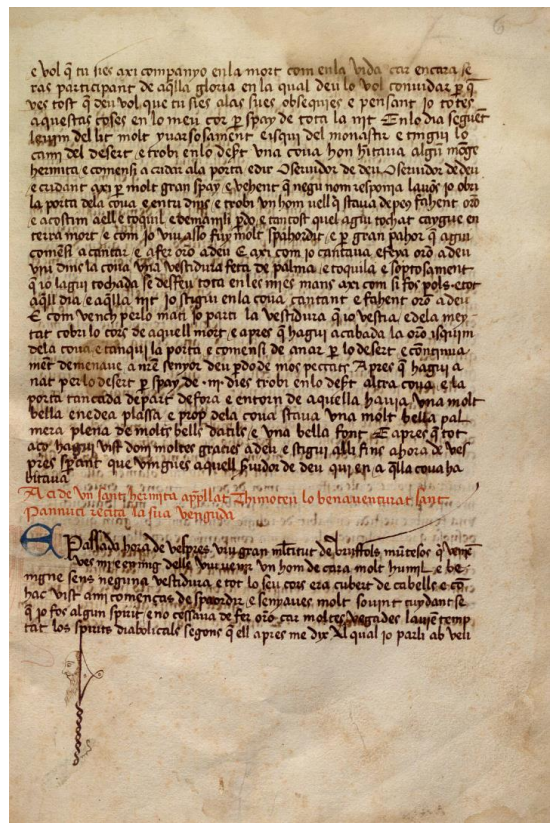 6
e vol q̃ tu sies axi companyo en la mort com en la vida car encara se
ras participant de aq̃lla gloria en la qual deu lo vol convidar p q̃
ves tost q̃ deu vol que tu sies a les sues obsequies e pensant jo totes
aquestes coses en lo meu cor p spay de tota la nit En lo dia seguẽt
levim del lit molt yvarsosamẽt e isqui del monastir e tingui lo
cami del desert e trobi en lo deẜt una cova hon hitava algũ mõge
hermita e comensi a cridar a la porta e dir O servidor de deu O servidor de deu
e cridant axi p molt gran spay e vehent q̃ negũ nom responia lavors jo obri
la porta de la cova e entri dins e trobi un hom vell q̃ stava de peus fahent oro
e acostim a ell e toquil e demanili pdo e tantost quel agui tochat caygue en
terra mort e com jo viu asso fuy molt spahordit e p gran pahor q̃ agui
comẽsi a cantar e a fer oro a deu E axi com jo cantava e feya oro a deu
viu dins la cova una vestidura feta de palma e toquila e soptosament
q̃ jo lagui tochada se desfeu tota en les mies mans axi com si fos pols e tot
aq̃ll dia e aq̃lla nit jo stigui en la cova cantant e fahent oro a deu
E com vench per lo mati jo parti la vestidura q̃ jo vestia e de la mey
tat cobri lo cors de aquell mort e apres q̃ hagui acabada la oro isquim
de la cova e tanqui la porta e comensi de anar p lo desert e continua
mẽt demenave a nr̃e senyor deu pdo de mos peccats Apres q̃ hagui a
nat per lo desert p spay de .iii. dies trobi en lo deẜt altra cova e la
porta tancada de part de fora e entorn de aquella havia una molt
bella e nedea plassa e prop de la cova stava una molt bella pal
mera plena de molts bells datils e una bella font E apres q̃ tot
aço hagui vist doni moltes gracies a deu e stigui alli fins a hora de ves
pres spant que vingues aquell svidor de deu qui en aq̃lla cova ha
bitava
Aci de un sant hermita appellat Thimoteu lo benaventurat sant
Pannuci recita la sua venguda
E Passado hora de vespres viu gran mltitut de briffols mũtesos q̃ venie
ves mi e enmig dells viu venir un hom de cara molt humil e be
nigne sens neguna vestidura e tot lo seu cors era cubert de cabells e cõ
hac vist a mi començas de spaordir e senyaves molt sovint cuydant se
q̃ jo fos algun spirit e no cessava de fer oro car moltes vegades lavie temp
tat los spirits diabolicals segons q̃ ell apres me dix Al qual jo parli ab veu